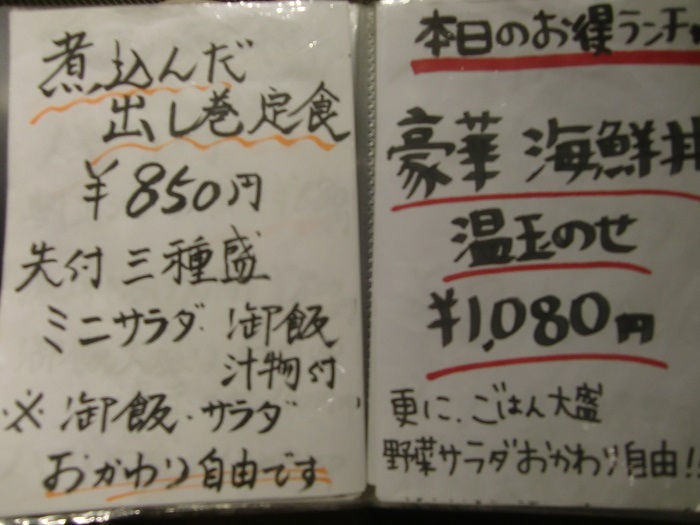 煮込んだ
出し巻定食
¥850円
先付三種盛
ミニサラダ 御飯
汁物付
※御飯・サラダ
おかわり自由です
本日のお得ランチ
豪華 海鮮丼
温玉のせ
¥1,080円
更に、ごはん大盛
野菜サラダおかわり自由!!